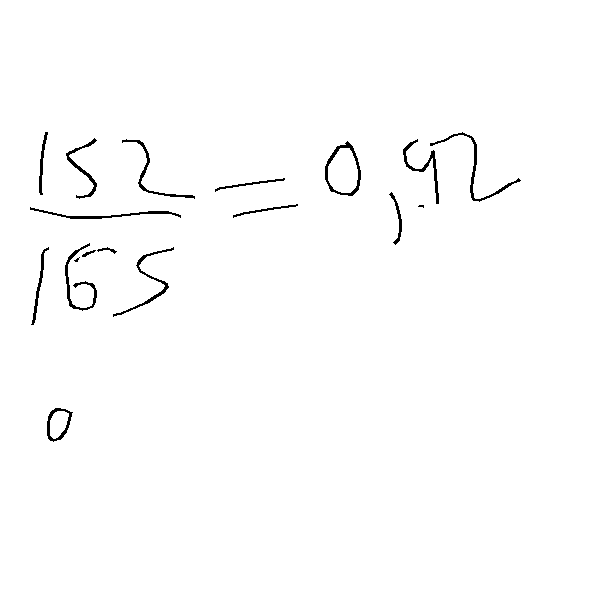 152
165 = 0,92
0